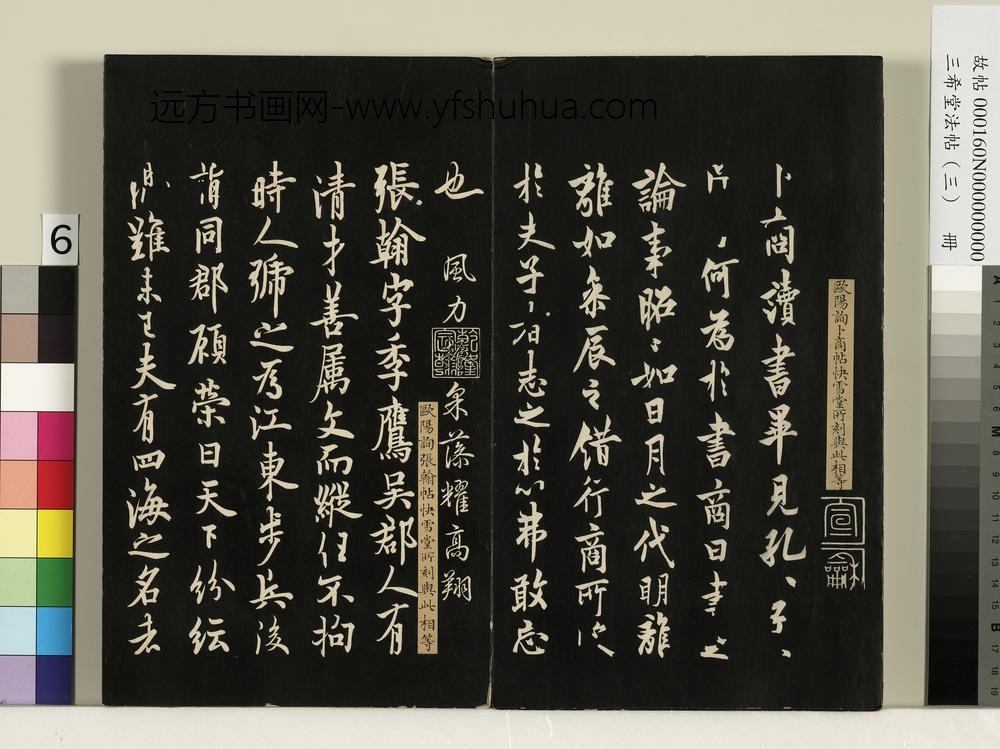 故帖 000160N000000000
三希堂法帖（三） 冊
歐陽詢卜商帖快雪堂所刻與此相等
宣
龢
卜商讀書畢見孔〻子〻
何為於書商曰書之
論事昭〻如日月之代明離
離如參辰之錯行商所
於夫子〻志之於心弗敢忘
也 風力 采藻耀高翔
乾隆宸翰
歐陽詢張翰帖快雪堂所刻與此相等
張翰字季鷹吳郡人有
清才善属文而縱任不拘
時人號之為江東步兵後
謂同郡顧榮曰天下紛紜
難未已夫有四海之名者
远方书画网-www.yfshuhua.com
6